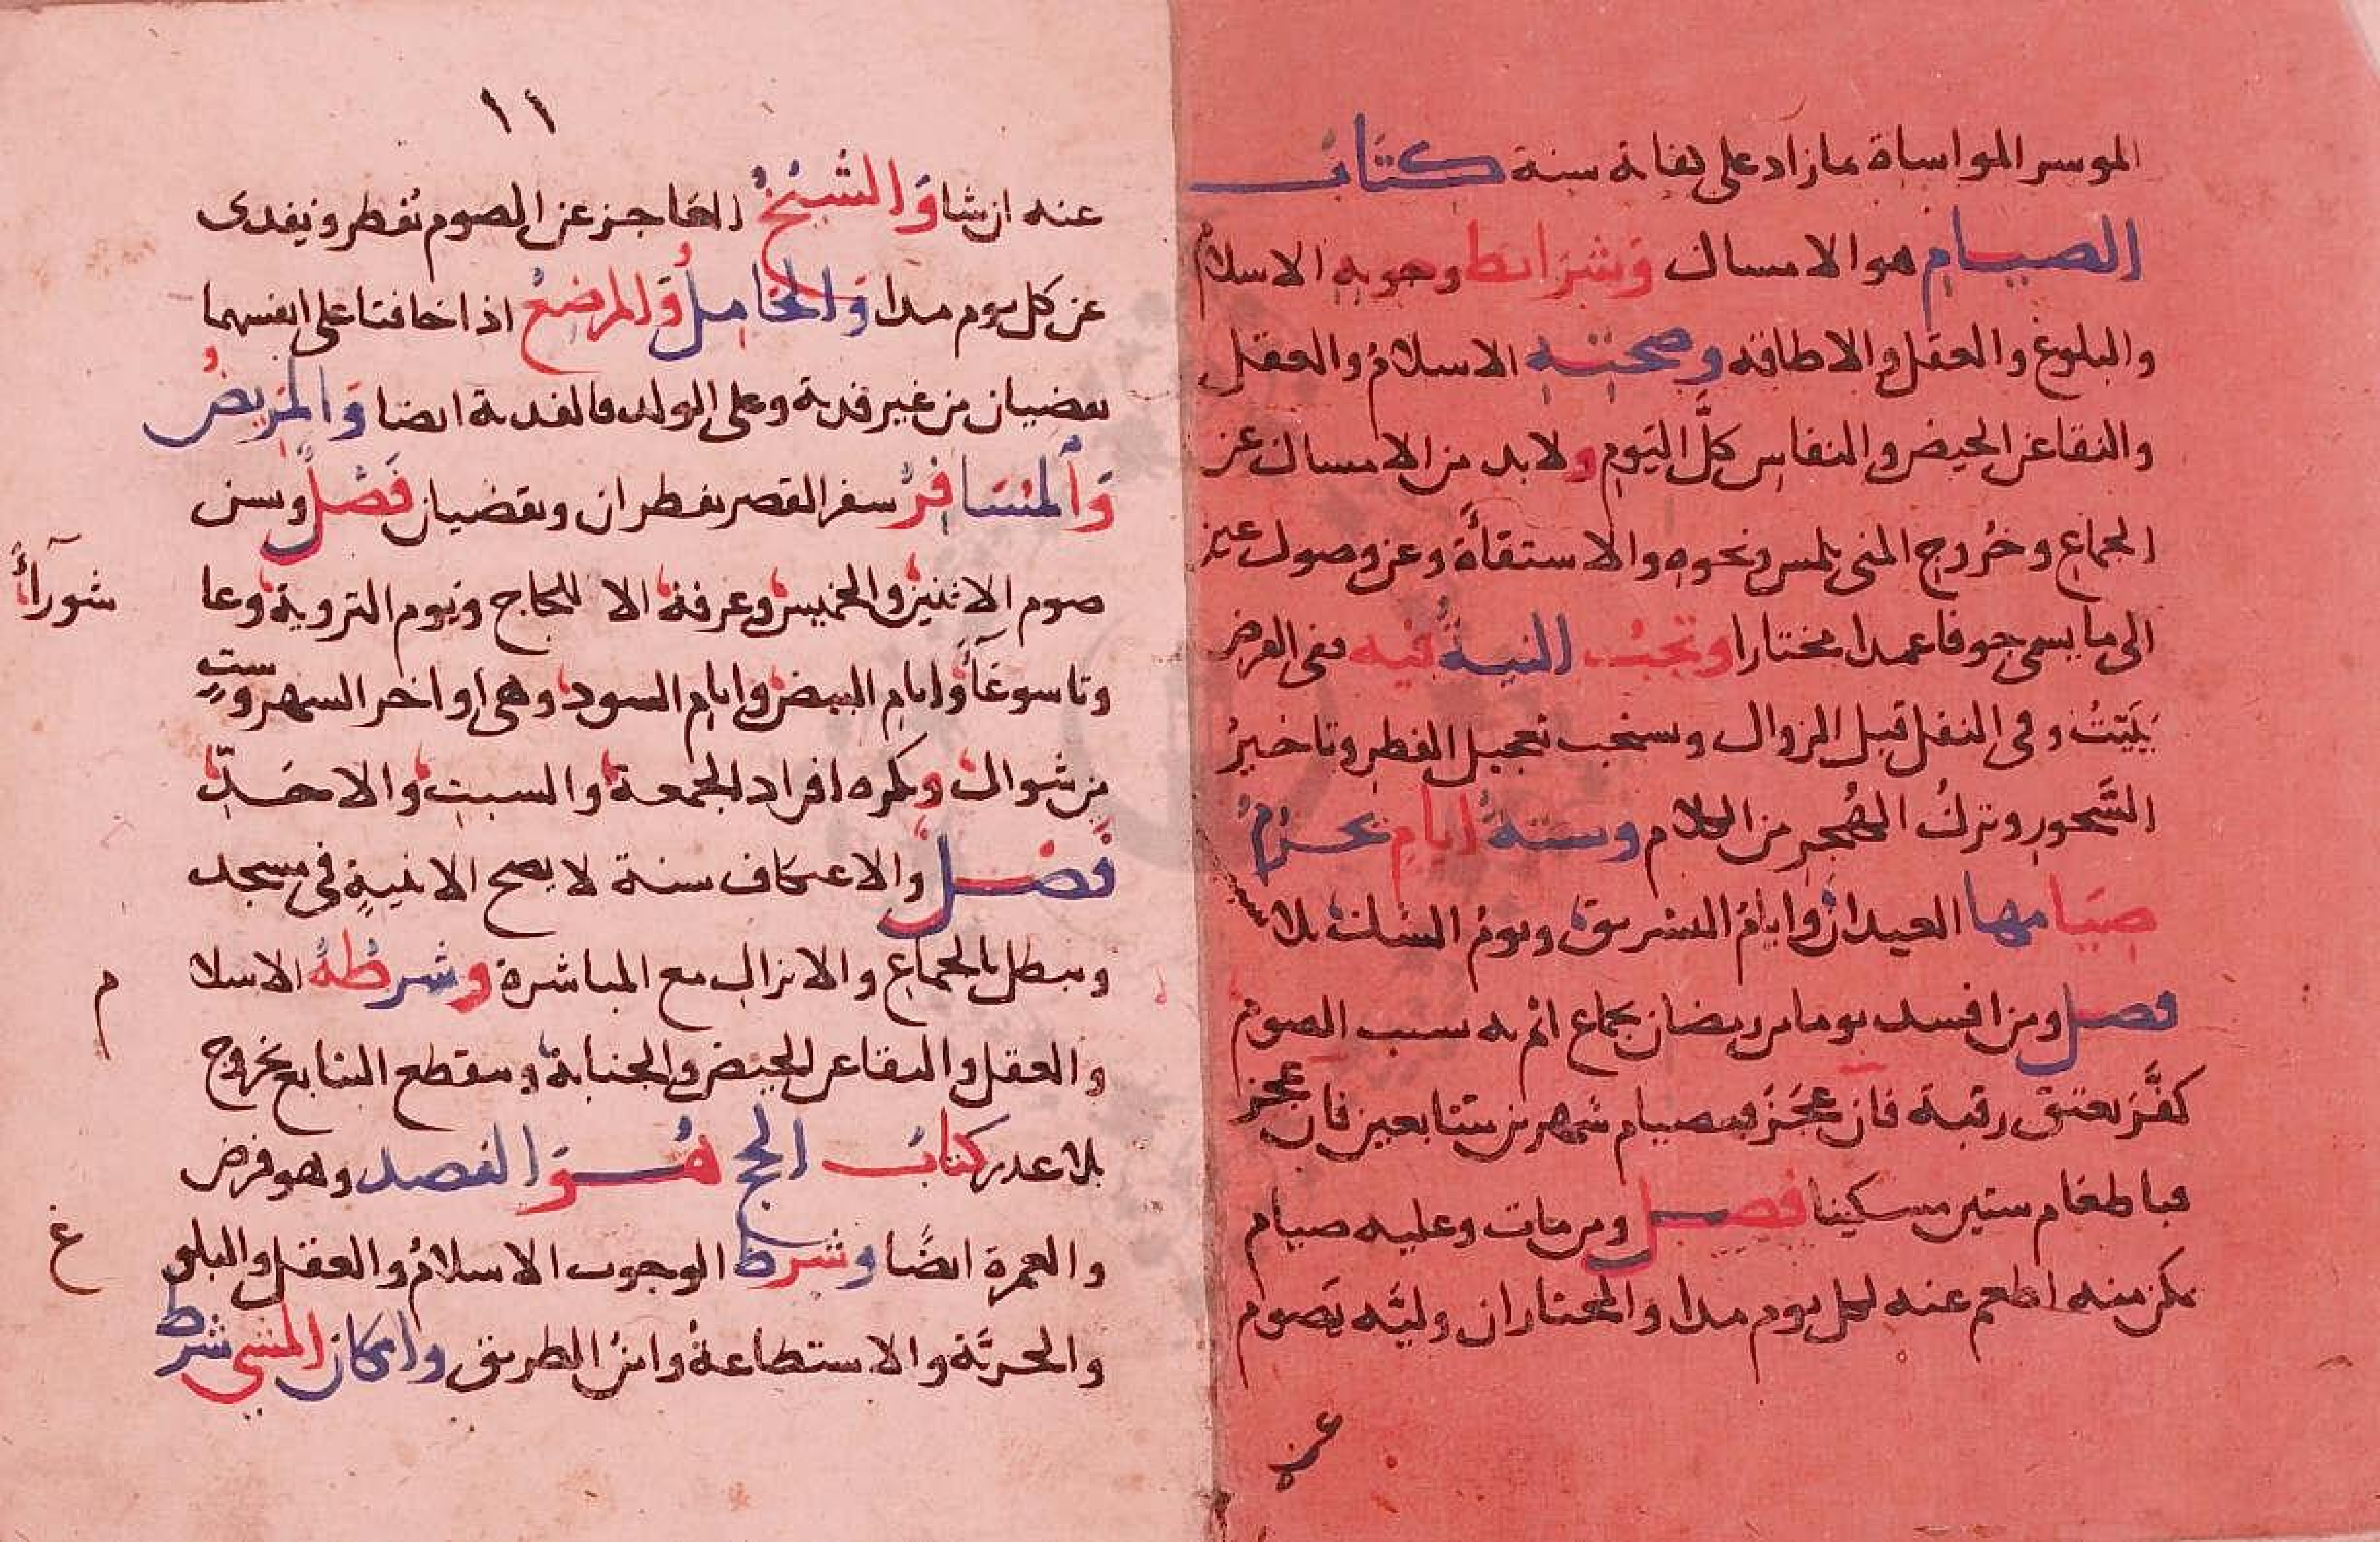 الموسر المواساة مازاد على كفاية سنة كتاب
الصيام هو الامساك وشرائط وجوبه الاسلام
والبلوغ والعقل والاطاقه وصحته الاسلام والعقل
والنقا عن الحيض والنفاس كلَّ اليوم ولا بد من الامساك عن
الجماع وخُروج المنى بلمس ونحوه والاستقاأة وعن وصول عين
الى ما يسمى جوفا عمدا مختارا وتجب النية فيه ففى الفرض
يُبَيّتُ وفى النفل قبل الزوال ويستحب تعجيل الفطر وتاخيرُ
السَّحور وتركُ الهُجر من الكلام وستة ايام تحرم
صيامها العيدان وايام التشريق ويوم الشك بلا سبب
فصل ومن افسد يوما من رمضان بجماع اثم به بسبب الصوم
كفَّر بعتق رقبة فان عَجَزَ فبصيام شهرين متتابعين فان عجز
فباطعام ستين مسكينا فصل ومن مات وعليه صيام
يمكن منه اطعم عنه لكل يوم مدا والمختار ان وليَّه يَصوم
عنه
١١
عنه ان شا وَالشيخُ العاجز عن الصوم يُفطر ويفدى
عن كل يوم مدا وَالحاملُ وَالمرضعُ اذا خافتا على انفسهما
يقضيان من غير فدية وعلى الولد فالفدية ايضا وَالمريضُ
وَالمسَافرُ سفر القصر يفطران ويقضيان فَصْلٌ ويسن
صوم الاثنين والخميس وعرفة الا للحاج ويوم التروية وعا
شورآأ
وتاسوعآأَ وايام البيض وايام السود وهى اواخر الشهر وستٍ
من شوال ويكره افراد الجمعة والسبت والاحَدِّ
فصل والاعتكاف سنة لا يصح الا بنيةٍ فى مسجد
ويبطل بالجماع والانزال مع المباشرة وشرطهُ الاسلا
م
والعقل والنقا عن الحيض والجنابة وينقطع التتابع بخروج
بلا عذر كتابُ الحج هُوَ القصد وهو فرض
والعمرة ايضًا وشرط الوجوب الاسلامُ والعقل والبلو
غ
والحريَّة والاستطاعةُ وامنُ الطريق وامكان المشى شرط